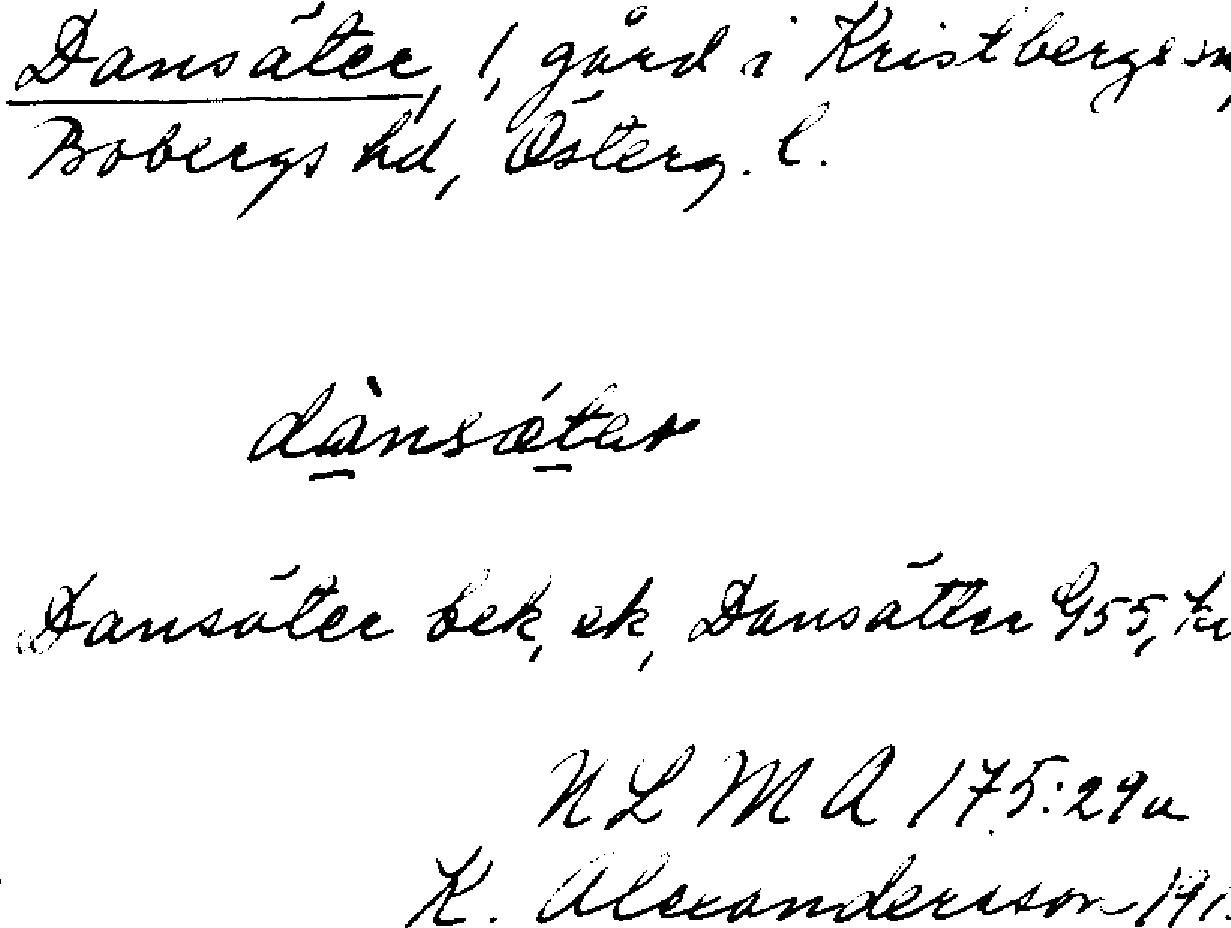 Dansäter, 1, gård i Kristbergs sn,
Bobergs hd, Österg. l.
dànsæ̀ter
Dansäter bek, ek, Dansätter G55,
N L M A 175:29a
K. Alexandersson 191